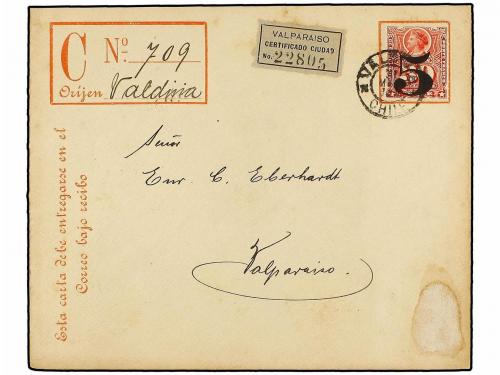 C Nº 709
Oríjen Valdivia
VALPARAISO
CERTIFICADO CIUDAD
No. 22805
5
CHILE
Señor
Enr. C. Eberhardt
Valparaiso.
Esta carta debe entregarse en el
Correo bajo recibo